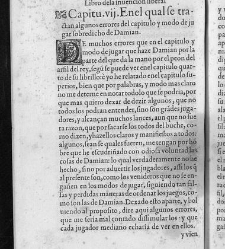 Libro dela inuencion liberal
Capitu. vij. En el qual se tra-
ctan algunos errores del capitulo y modo de ju-
gar sobredicho de Damian.
DE muchos errores que en el capitulo y
modo de jugar que haze Damian por la
parte del que da la mano por el peon del
arfil del rey, segũ se puede ver enel capitulo quar-
to de su librillo: è yo he relatado enel capitulo su-
perior, bien que por palabras, y modo mas claro
no me determine en notar todolo que se podria, por
que mas quiero dexar de dezir algunos, que no
todos los conoscan, sino fueren grãdes juga-
dores, y alcançan muchos lances, aun que no fue
ra razon, que por sacarse los todos del bucho, co-
mo dizen, y hazellos claros y manifiestos a no dar
algunos, sean de quales fueren, me tengan por hõ
bre que he escudriñado
cosas de Damian: lo qual verdaderamente no he
hecho, sino por aduertir los jugadores,
al presente son, como los venideros que no se en-
gañen en los modos de jugar, siguiendo tan fal-
sas y perdidas maneras de ordenar los juegos, co-
mo son las de Damian. Dexado esto aparte, y bol
uiendo al proposito, dire aqui algunos errores,
que me seria mal contado dissimular los: y que
cada jugador mediano echaria de ver en ellos,
y vien